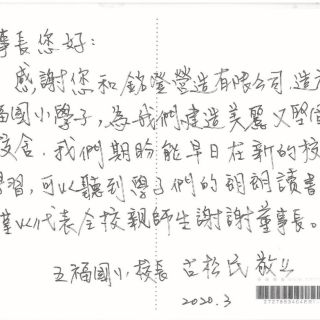 事長您好：
感謝您和銘登營造有限公司，造
福國小學子，為我們建造美麗又堅
校舍，我們期盼能早日在新的校
學習，可以聽到學子們的朗朗讀書
僅以代表全校親師生謝謝董事長。
五福國小校長 古松民 敬上
2020.3